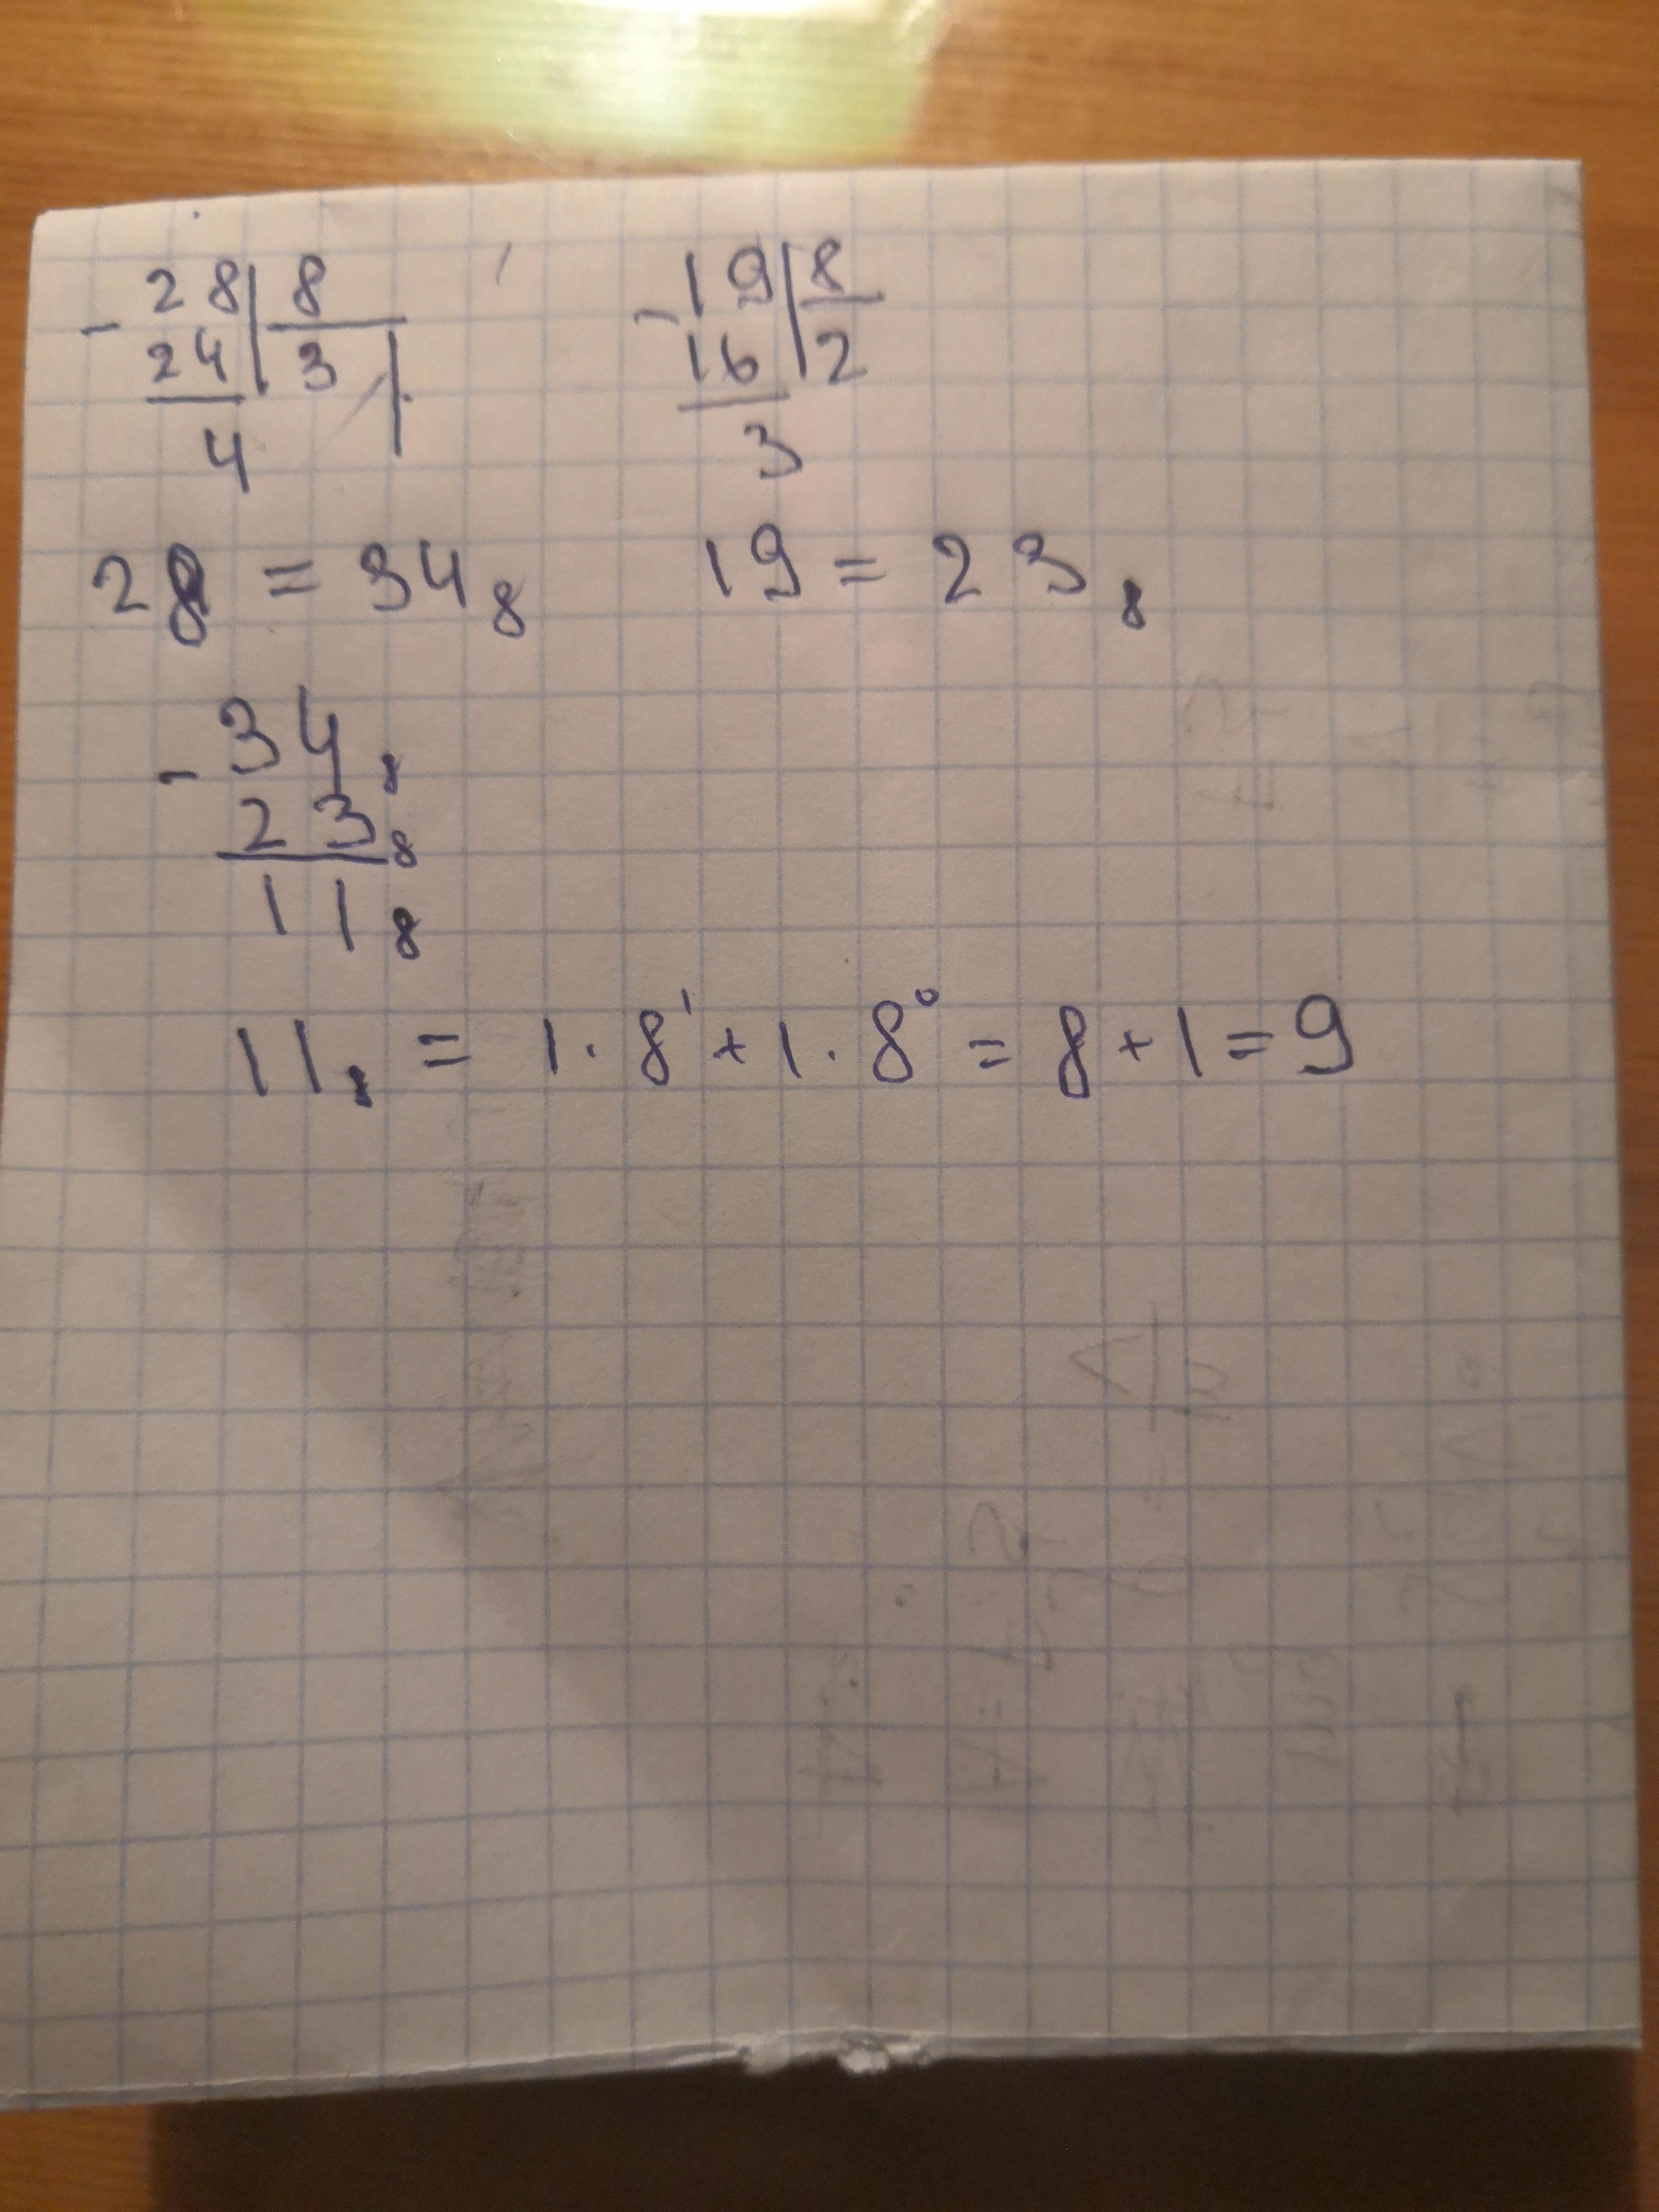 - 28 | 8 - 19 | 8
24 | 3 | 16 | 2
4 3
28 = 34₈ 19 = 23₈
- 34₈
23₈
11₈
11₈ = 1 · 8¹ + 1 · 8⁰ = 8 + 1 = 9